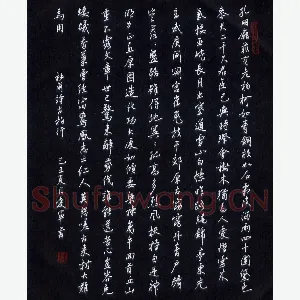 孔明廟前有老柏柯如青銅根如石霜皮溜雨四十圍黛色
參天二千尺君臣已與時際會樹木猶為人愛惜雲來
氣接巫峽長月出寒通雪山白憶昨路繞錦亭東先
主武侯同閟宮崔嵬枝幹郊原古窈窕丹青戶牖
空落落盤踞雖得地冥冥孤高多烈風扶持自是神
明力正直原因造化功大廈如傾要梁棟萬牛回首丘山
重不露文章世已驚未辭剪伐誰能送苦心豈免容
螻蟻香葉曾經宿鸞鳳志士仁人莫怨嗟古來材大難
為用
杜甫詩古柏行
己丑夏
書
Shufawang.CN